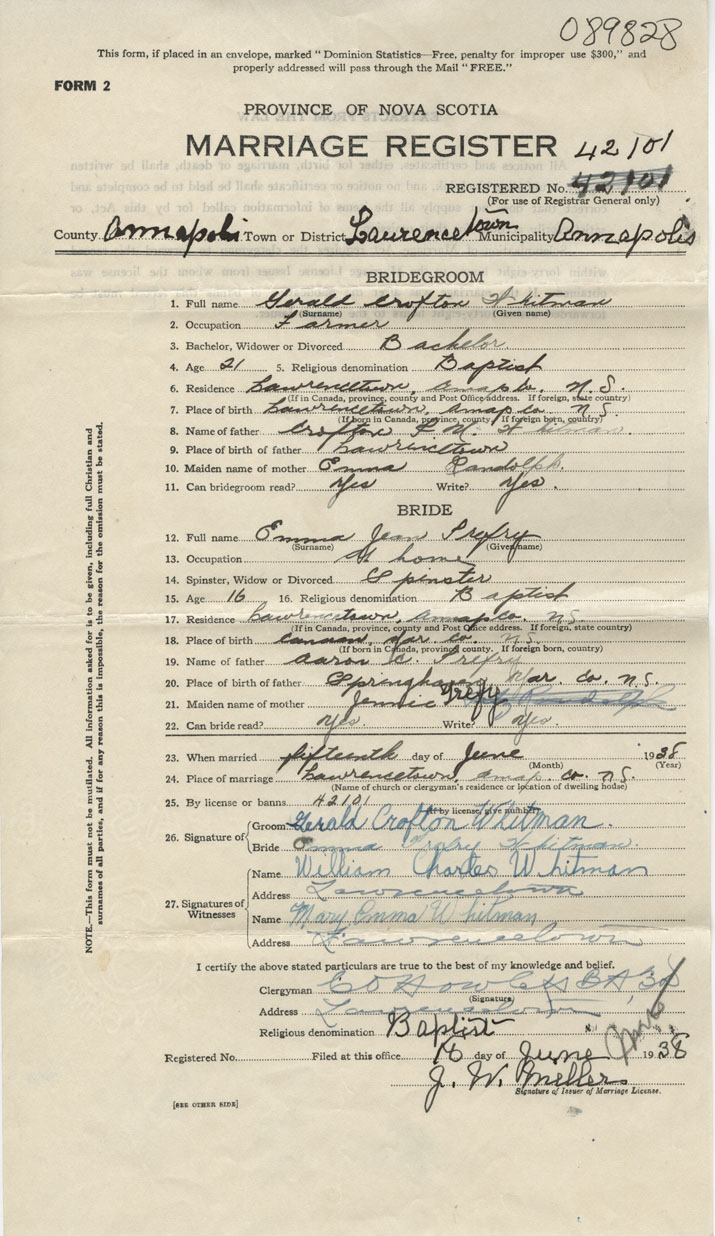 089828
This form, if placed in an envelope, marked "Dominion Statistics—Free, penalty for improper use $300," and
properly addressed will pass through the Mail "FREE."
FORM 2
PROVINCE OF NOVA SCOTIA
MARRIAGE REGISTER 42101
REGISTERED No. 42101
(For use of Registrar General only)
County Annapolis Town or District Lawrencetown Municipality Annapolis
BRIDEGROOM
1. Full name Gerald Crofton Whitman
(Surname) (Given name)
2. Occupation Farmer
3. Bachelor, Widower or Divorced Bachelor
4. Age 21 5. Religious denomination Baptist
6. Residence Lawrencetown, Annap. Co. N.S.
(If in Canada, province, county and Post Office address. If foreign, state country)
7. Place of birth Lawrencetown, Annap Co. N.S.
(If born in Canada, province, county. If foreign born, country)
8. Name of father Crofton F. M. Whitman
9. Place of birth of father Lawrencetown
10. Maiden name of mother Emma Randolph.
11. Can bridegroom read? Yes Write? Yes.
BRIDE
12. Full name Emma Jean Trefry
(Surname) (Given name)
13. Occupation At home
14. Spinster, Widow or Divorced Spinster
15. Age 16 16. Religious denomination Baptist
17. Residence Lawrencetown, Annap Co. N.S.
(If in Canada, province, county and Post Office address. If foreign, state country)
18. Place of birth Canaan, Yar. Co. N.S.
(If born in Canada, province, county. If foreign born, country)
19. Name of father Aaron C. Trefry
20. Place of birth of father Springhaven, Yar. Co. N.S.
21. Maiden name of mother Jennie Trefry Randolph
22. Can bride read? Yes. Write? Yes.
23. When married fifteenth day of June 1938
(Month) (Year)
24. Place of marriage Lawrencetown, Annap. Co. N.S.
(Name of church or clergyman's residence or location of dwelling house)
25. By license or banns 42101
(If by license, give number)
26. Signature of Groom Gerald Crofton Whitman.
Bride Emma Trefry Whitman.
27. Signatures of Witnesses Name William Charles Whitman
Address Lawrencetown
Name Mary Emma Whitman
Address Lawrencetown
I certify the above stated particulars are true to the best of my knowledge and belief.
Clergyman
(Signature)
Address Lawrencetown
Religious denomination Baptist
Registered No. Filed at this office 16 day of June 1938
J. W. Miller
Signature of Issuer of Marriage License.
[SEE OTHER SIDE]
NOTE.—This form must not be mutilated. All information asked for is to be given, including full Christian and
surnames of all parties, and if for any reason this is impossible, the reason for the omission must be stated.